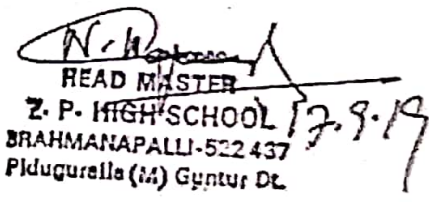 HEAD MASTER
Z. P. HIGH SCHOOL 17.9.19
BRAHMANAPALLI-522 437
Piduguralla (M) Guntur Dt.